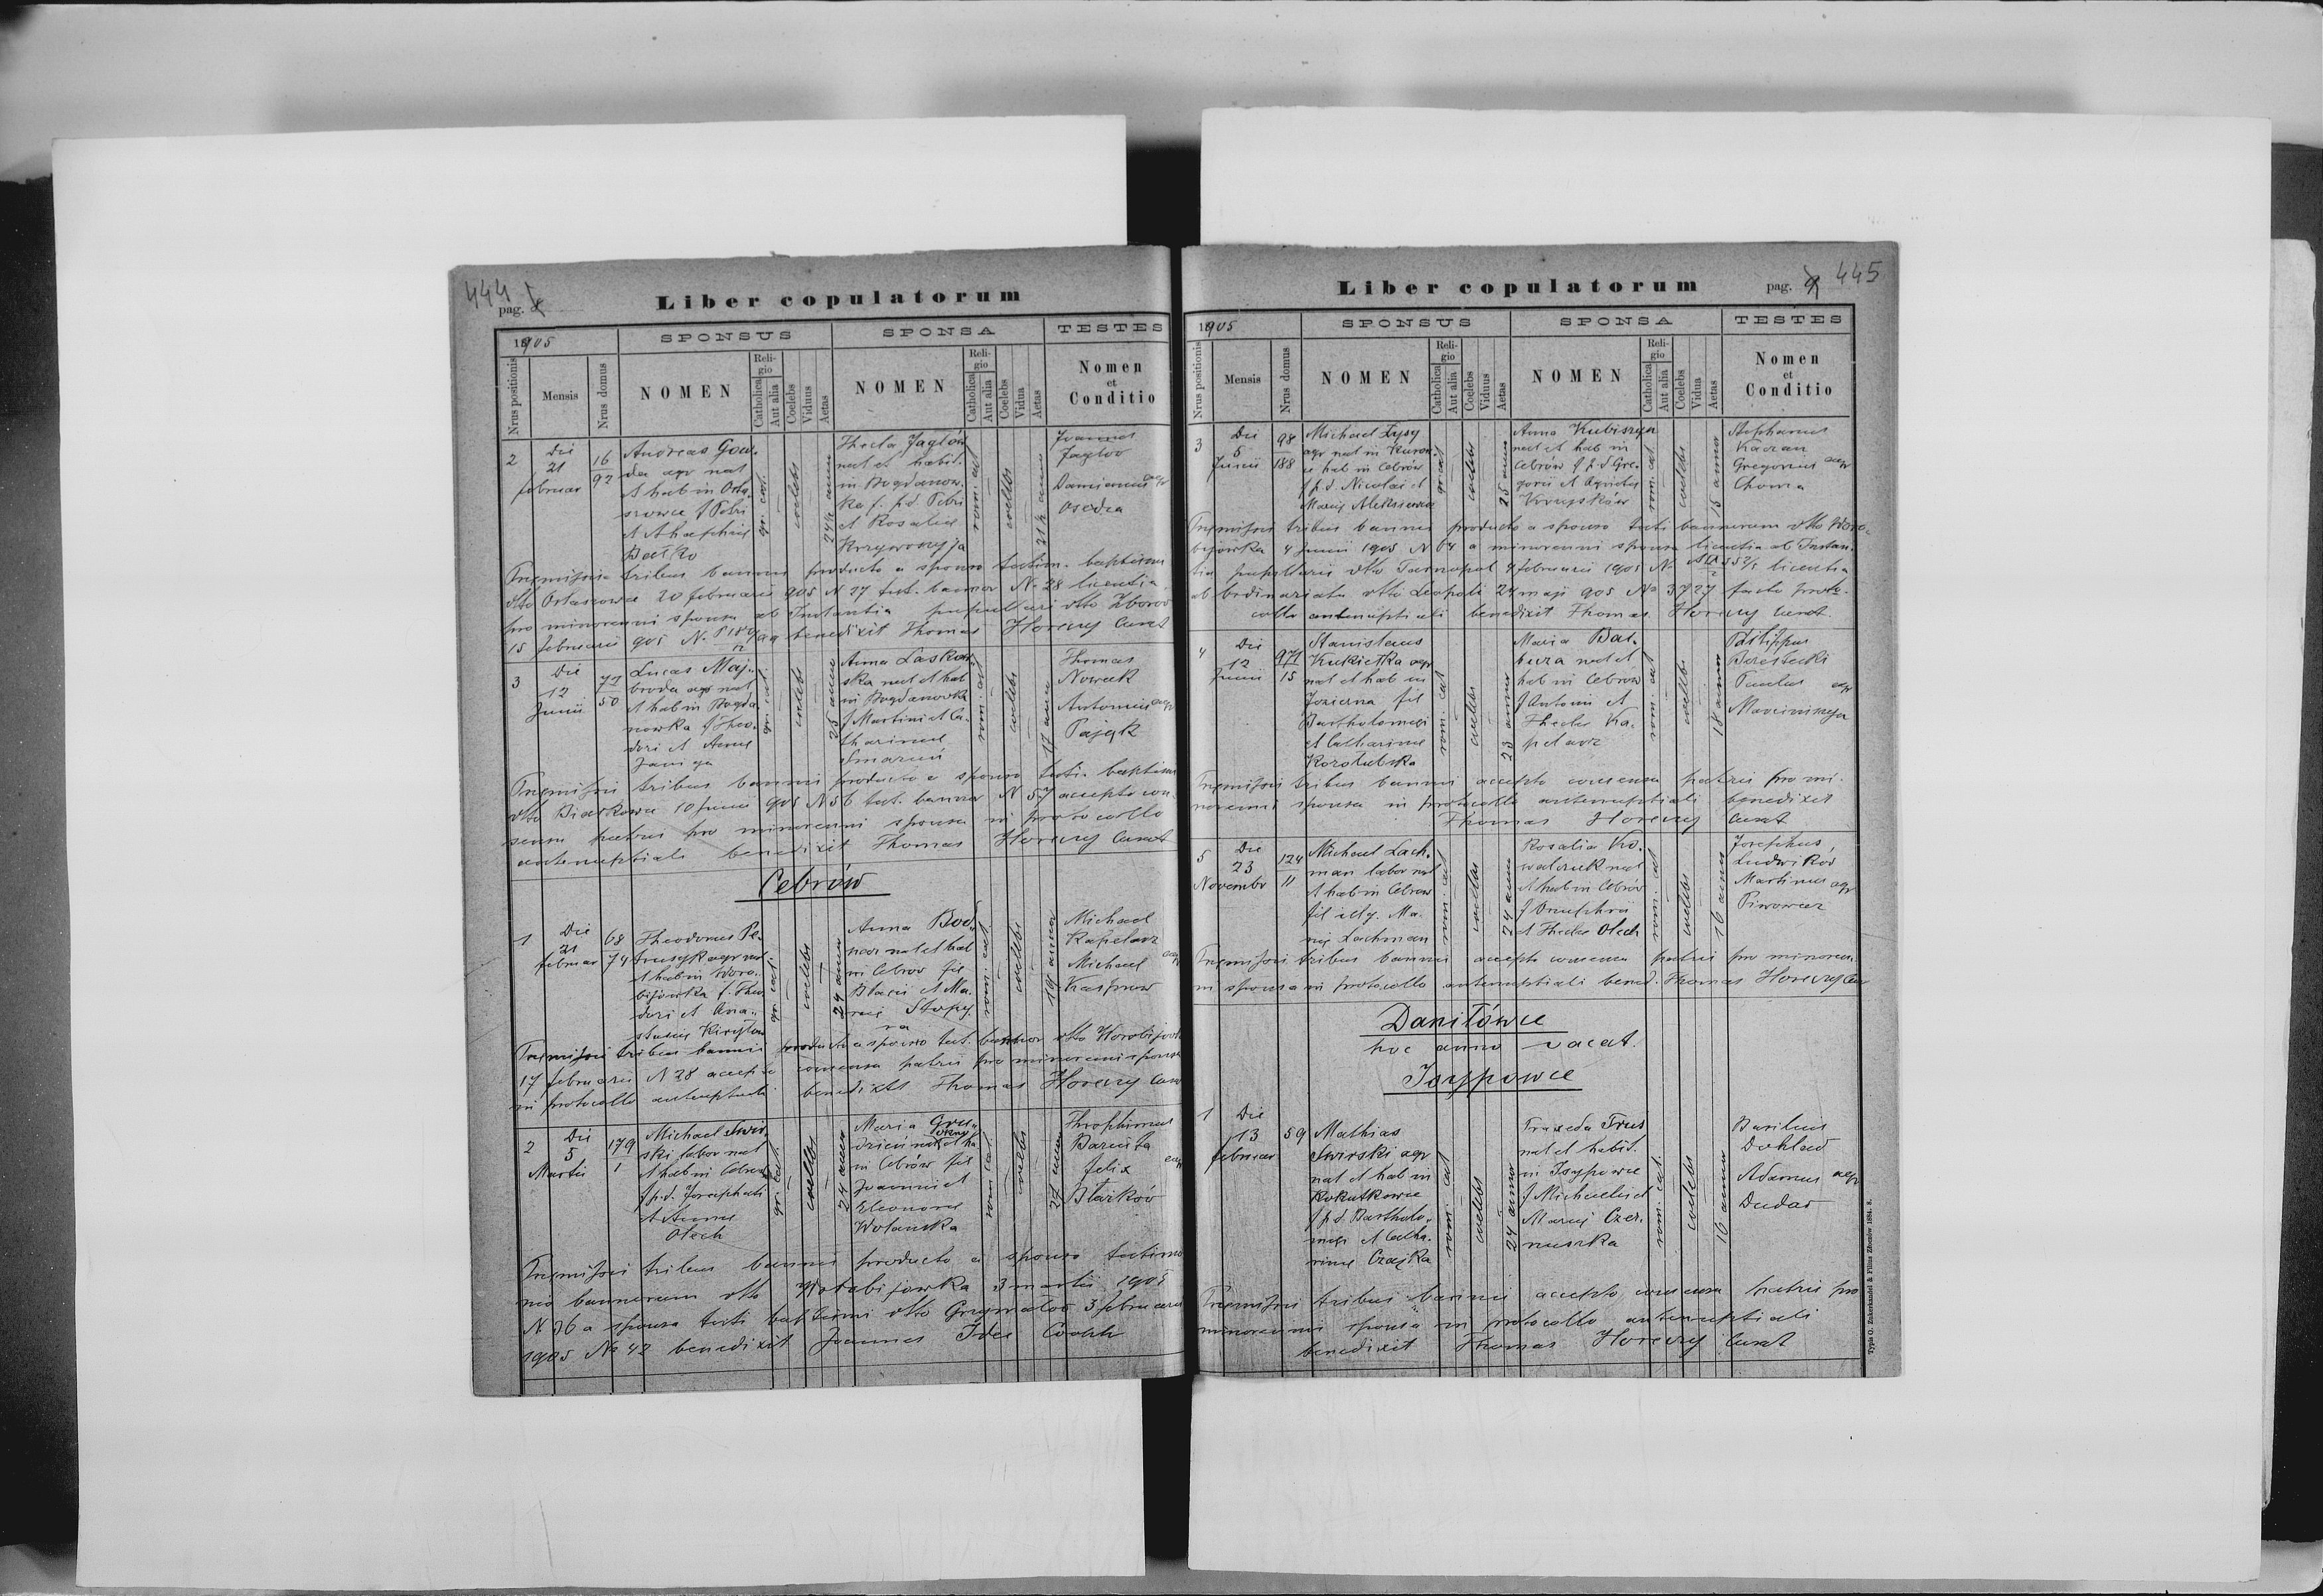 444
pag.
Liber copulatorum
1905
SPONSUS
SPONSA
TESTES
Nrus positionis
Mensis
Nrus domus
NOMEN
Religio
Catholica
Aut alia
Coelebs
Viduus
Aetas
NOMEN
Religio
Catholica
Aut alia
Coelebs
Vidua
Aetas
Nomen
et
Conditio
2
Die
21
februar
16
92
Andreas Gow-
da agr nat
et hab in Osta-
szowce f Petri
gr. cat.
coelebs
Thecla Jaglów
nat et habit.
in Bogdanow-
ka f. p.d. Petri
et Rosaliae
rom. cat
coelebs
Joannes
Jaglov
Damianus agr
Praemissis tribus bannis producto a sponso testim. baptismi
dtto Ostaszowce 20 februarii 905 N 27 test. bannor N. 28 licentia
pro minorenni sponsa ab Instantia pupillari dtto Zborow
15 februarii 905 benedixit Thomas Horeczy Curat
3
Die
12
Junii
71
50
Lucas Maj-
broda agr nat
et hab in Bogda-
nowka f Theo-
dori et Annae
gr. cat.
coelebs
25 anno
Anna Laskow-
ska nat et hab
in Bogdanowka
f Martini et Ca-
tharinae
rom. cat
coelebs
17 anno
Thomas
Nowak
Antonius agr
Pająk
Praemissis tribus bannis producto a sponso testi. baptism
dtto Białkowce 10 Junii 905 N 56 test. bannor N 57 accepto con-
sensu patris pro minorenni sponsa in protocollo
antenuptiali benedixit Thomas Horeczy Curat
Cebrów
1
Die
21
februar
68
74
Theodorus Pe-
truszyk agr nat
et hab in Woro-
bijowka f. Theo
dori et Ana-
stasiae
gr. cat.
coelebs
24 anno
Anna Bod-
nar nat et hab
in Cebrow fil
Blasii et Ma-
riae
rom. cat
coelebs
19 anno
Michael
Kapelarz
Michael agr
Kasprow
Praemissis tribus bannis producto a sponso test. bannor dtto Worobijowk
17 februarii N 28 accepto consensu patris pro minorenni sponsa
in protocollo antenuptiali benedixit Thomas Horeczy Cura
2
Die
5
Martii
179
1
Michael Swir-
ski labor nat
et hab in Cebrow
f p.d. Josephati
et Annae
Olech
gr. cat
coelebs
24 anno
Maria Gru-
in Cebrów fil
Joannis et
Eleonorae
Wolanska
rom cat.
coelebs
22 anno
Throphimus
Felix agr
Praemissis tribus bannis producto a sponso testimo
nio bannorum dtto Worobijowka 3 martii 1905
N 36 a sponsa testi baptismi dtto Grzymałow 3 februarii
1905 No 42 benedixit Joannes
Liber copulatorum
pag. 9
445
1905
SPONSUS
SPONSA
TESTES
Nrus positionis
Mensis
Nrus domus
NOMEN
Religio
Catholica
Aut alia
Coelebs
Viduus
Aetas
NOMEN
Religio
Catholica
Aut alia
Coelebs
Vidua
Aetas
Nomen
et
Conditio
3
Die
5
Junii
98
188
Michael Łysy
agr nat in
et hab in Cebrow
f p.d. Nicolai et
Mariae
gr cat
coelebs
25 anno
Anna Kubiszyn
nat et hab in
Cebrów f p.d Gre-
gorii et
rom. cat.
coelebs
15 anno
Stephanus
Kaczan
Gregorius agr
Choma
Praemissis tribus bannis producto a sponso testi bannorum dtto Woro-
bijowka 4 Junii 1905 N 64 a minorenni sponsa licentia ab Instan-
tia pupillari dtto Tarnopol 4 februarii 1905 licentia
ab Ordinariatu dtto Leopoli 24 maji 905 No 3727 facto proto-
collo antenuptiali benedixit Thomas Horeczy Curat.
4
Die
12
Junii
971
15
Stanislaus
Kukiełka agr
nat et hab in
Jezierna fil
Bartholomaei
et Catharinae
rom. cat
coelebs
23 anno
Maria Bal-
nat et
hab in Cebrow
f Antonii et
Theclae Ka-
pelarz
rom. cat
coelebs
18 anno
Philippus
Berestecki
Paulus agr
Praemissis tribus bannis accepto consensu patris pro mi-
norenni sponsa in protocollo antenuptiali benedixit
Thomas Horeczy Curat
5
Die
23
Novembr
124
11
Michael Lach-
man labor nat
et hab in Cebrow
fil illg. Ma-
riae Lachman
rom. cat
coelebs
24 anno
Rosalia Ko-
walczuk nat
et hab in Cebrów
f Onuphrii
et Theclae Olech
rom. cat
coelebs
16 anno
Josephus
Ludwikow
Martinus agr
Piwowar
Praemissis tribus bannis accepto consensu patris pro minoren
ni sponsa in protocollo antenuptiali bened. Thomas Horeczy Cur
Daniłówce
hoc anno vacat.
Isypowce
1
Die
13
februar
59
Mathias
Swirski agr
nat et hab in
Kokutkowce
f p.d. Bartholo-
maei et Catha-
rinae Czajka
rom. cat
coelebs
24 anno
Praxeda Trus
nat et habit.
in Isypowce
f Michaelis et
Mariae Czer-
nuszka
rom. cat.
coelebs
16 anno
Basilius
Adamus agr
Dudar
Praemissis tribus bannis accepto consensu patris pro
minorenni sponsa in protocollo antenuptiali
benedixit Thomas Horeczy Curat
Typis O. Zukerkandel & Filius Złoczów 1884. 8.